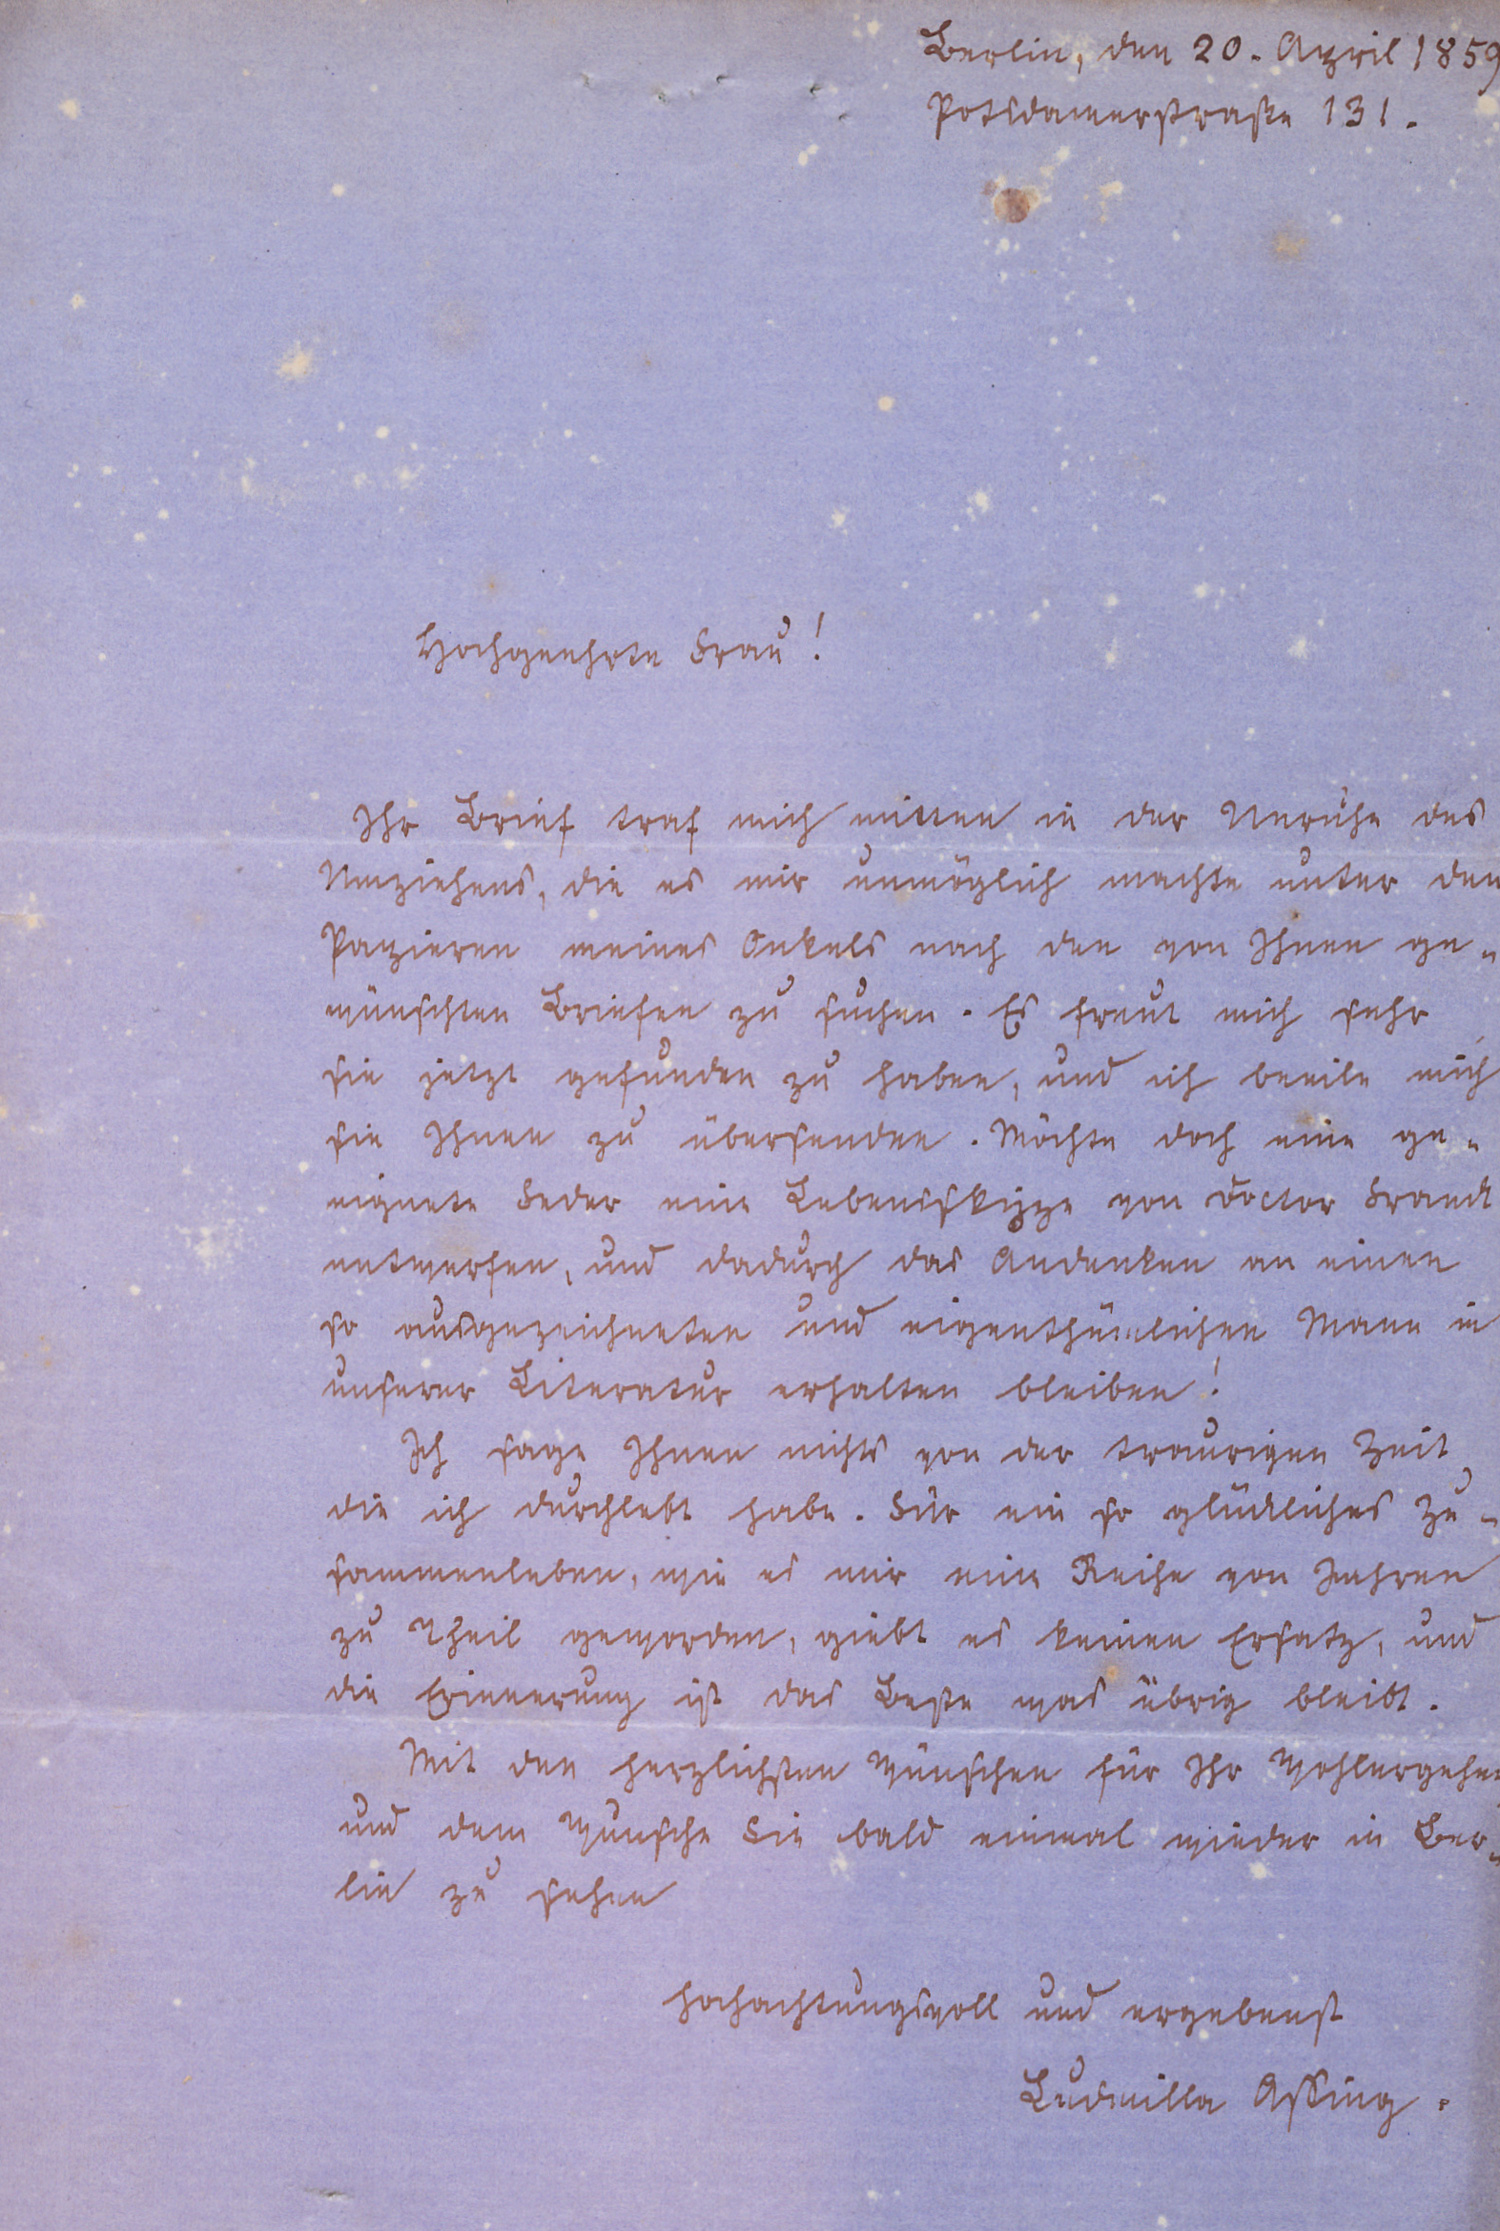 Berlin, den 20. April 1859
Potsdamerstraße 131.
Hochgeehrte Frau!
Ihr Brief traf mich mitten in der Unruhe des
Umziehens, die es mir unmöglich machte unter den
Papieren meines Onkels nach den von Ihnen ge-
wünschten Briefen zu suchen. Es freut mich sehr
sie jetzt gefunden zu haben, und ich beeile mich
sie Ihnen zu übersenden. Möchte doch eine ge-
eignete Feder eine Lebensskizze von Doctor Franck
entwerfen, und dadurch das Andenken an einen
so ausgezeichneten und eigenthümlichen Mann in
unserer Literatur erhalten bleiben!
Ich sage Ihnen nichts von der traurigen Zeit
die ich durchlebt habe. Für ein so glückliches Zu-
sammenleben, wie es mir eine Reihe von Jahren
zu Theil geworden, giebt es keinen Ersatz, und
die Erinnerung ist das Beste was übrig bleibt.
Mit den herzlichsten Wünschen für Ihr Wohlergehen
und dem Wunsche Sie bald einmal wieder in Ber-
lin zu sehen
hochachtungsvoll und ergebenst
Ludmilla Assing.